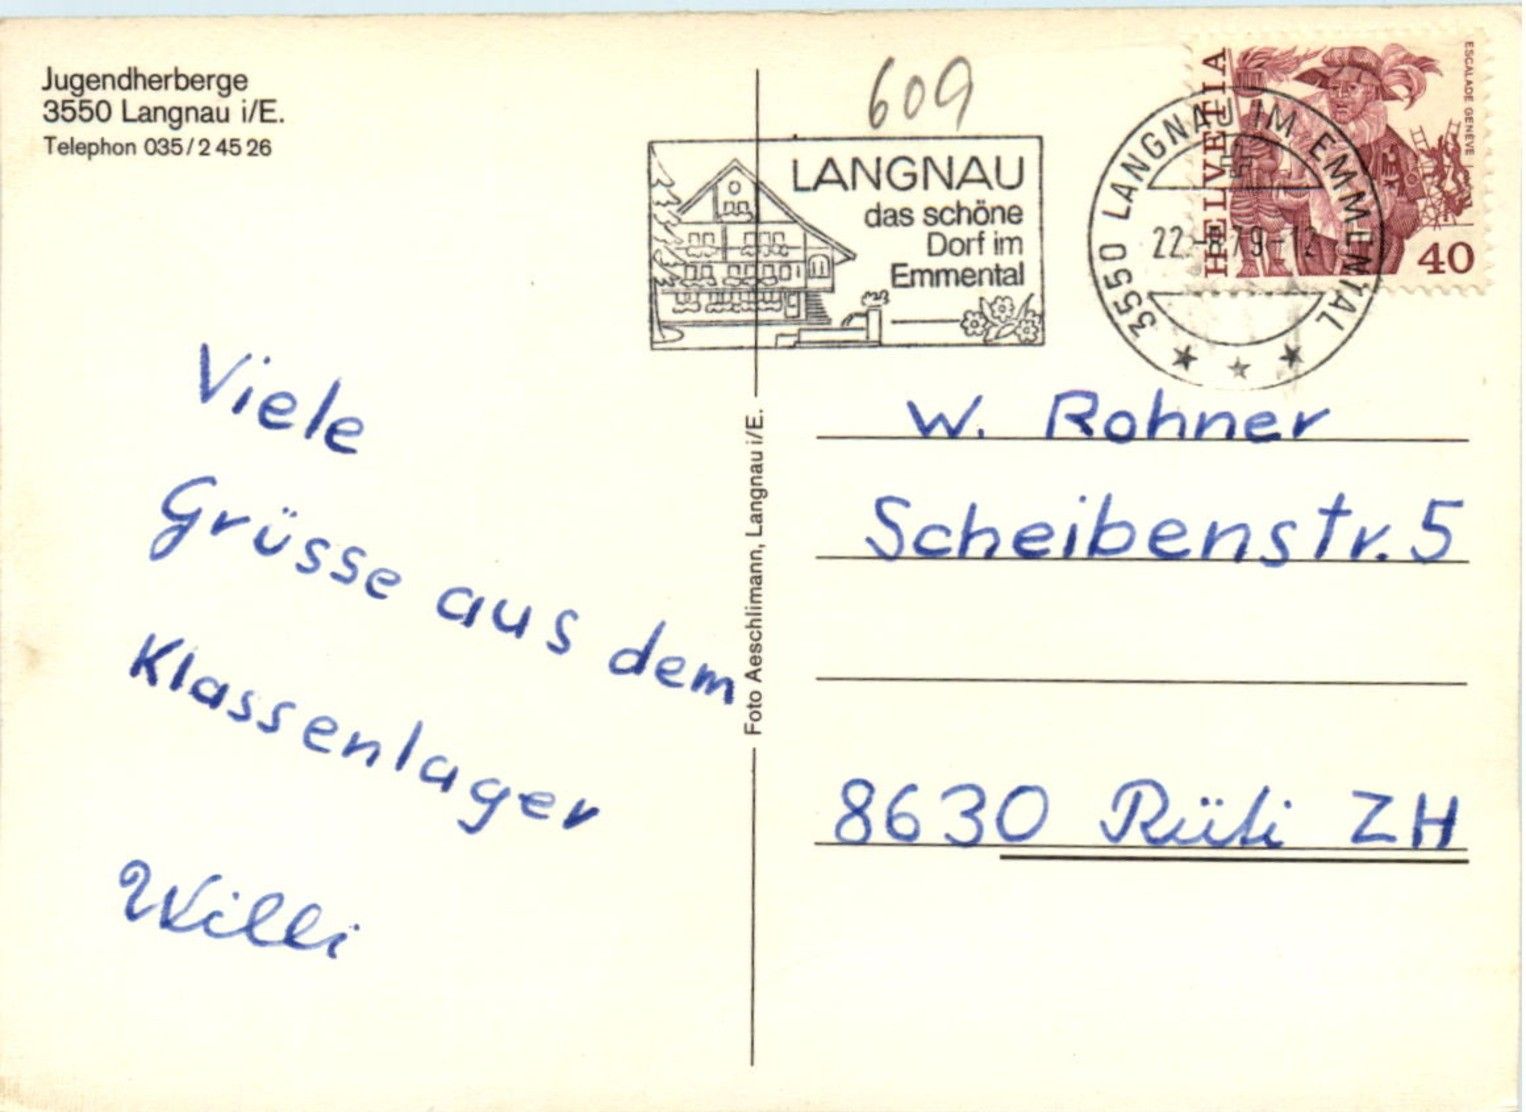 Jugendherberge
3550 Langnau i/E.
Telephon 035/2 45 26
609
LANGNAU
das schöne
Dorf im
Emmental
3550 LANGNAU IM EMMENTAL
22. 79-12
HELVETIA
ESCALADE GENÈVE
40
Viele
Grüsse aus dem
Klassenlager
Willi
Foto Aeschlimann, Langnau i/E.
W. Rohner
Scheibenstr. 5
8630 Rüti ZH